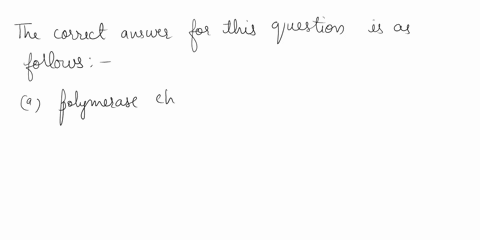 The correct answer for this question is as
follows:-
(a) polymerase ch